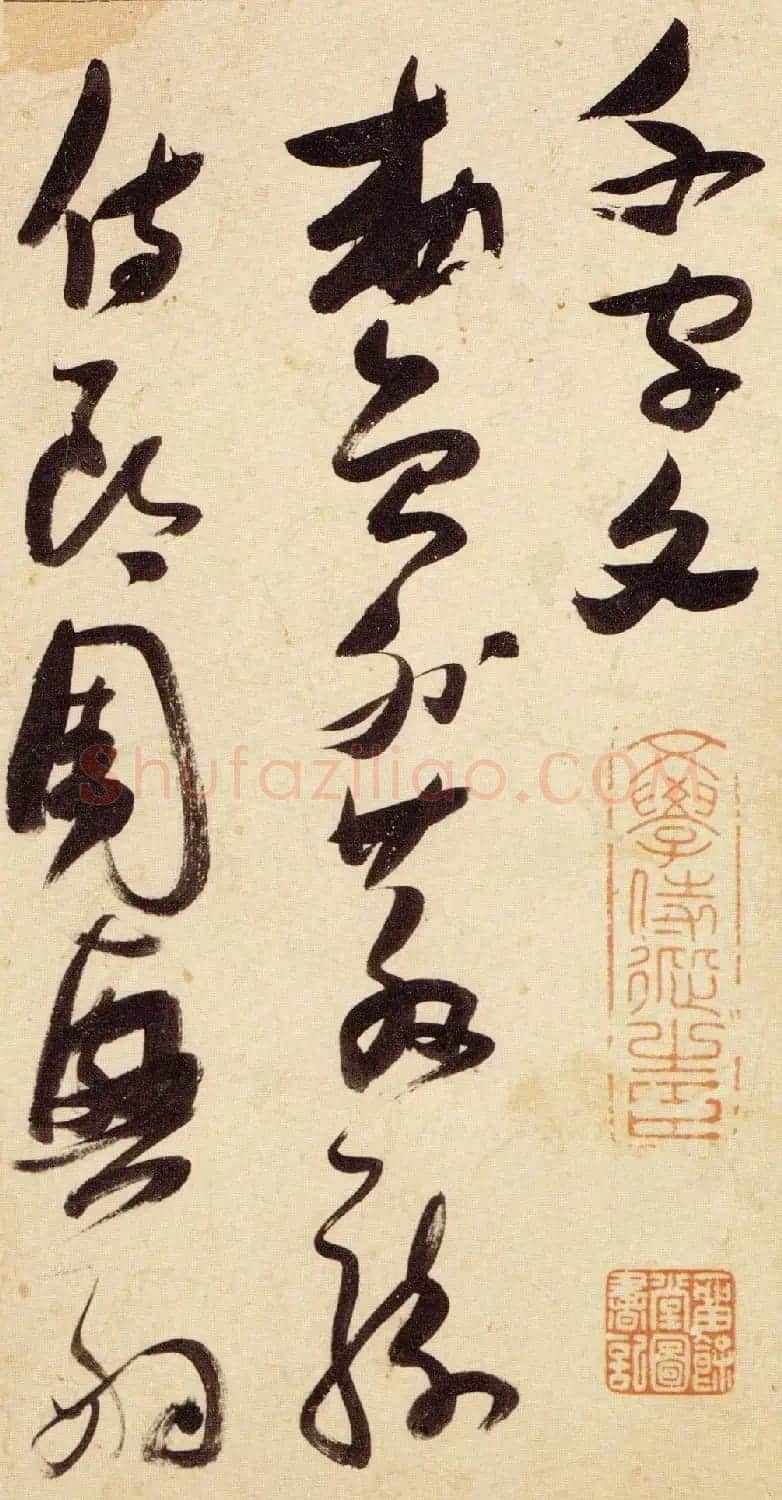 千字文
敕員外散騎
侍郎周興嗣
Shufaziliao.COM